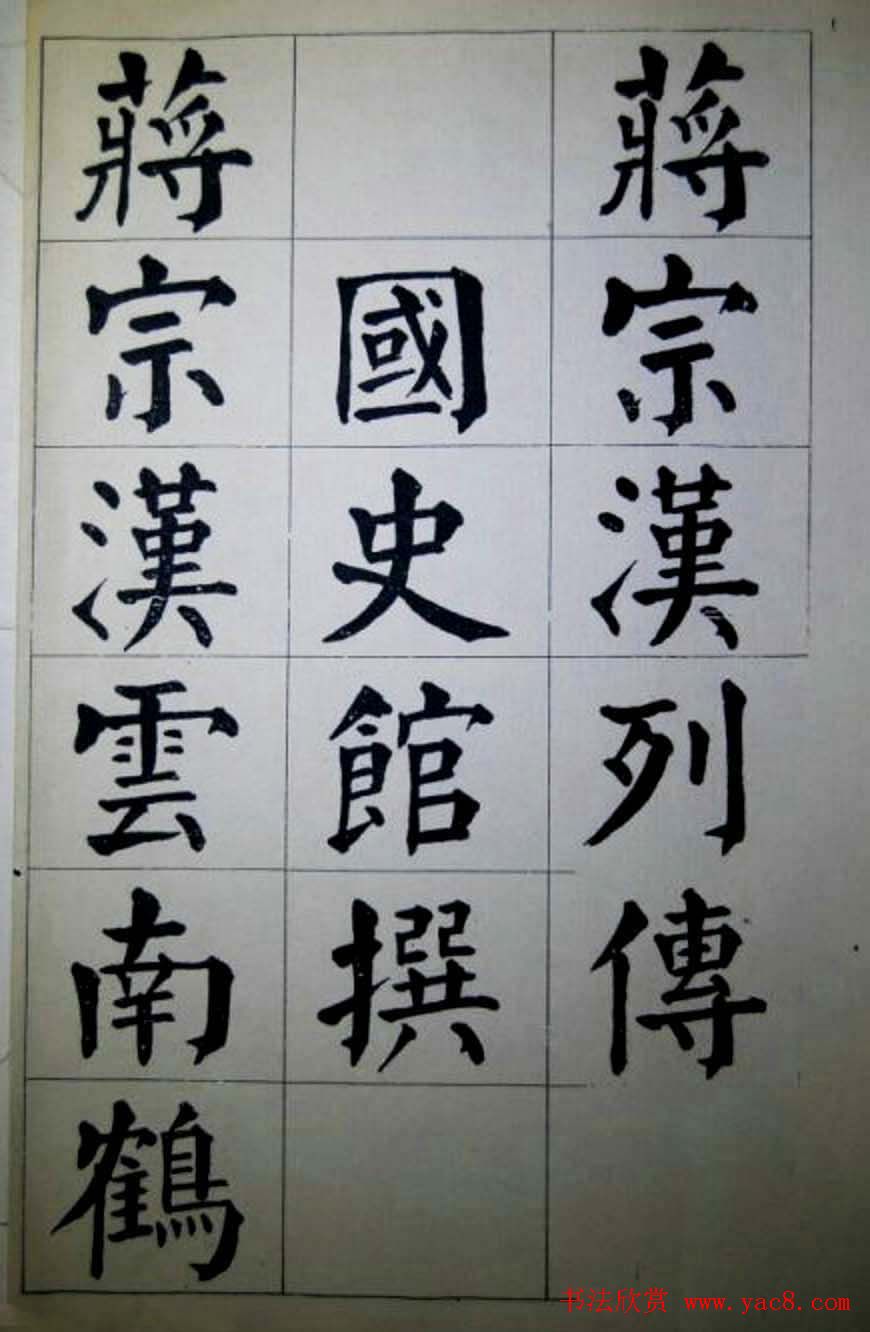 蔣宗漢列傳
國史館撰
蔣宗漢雲南鶴
书法欣赏 www.yac8.com